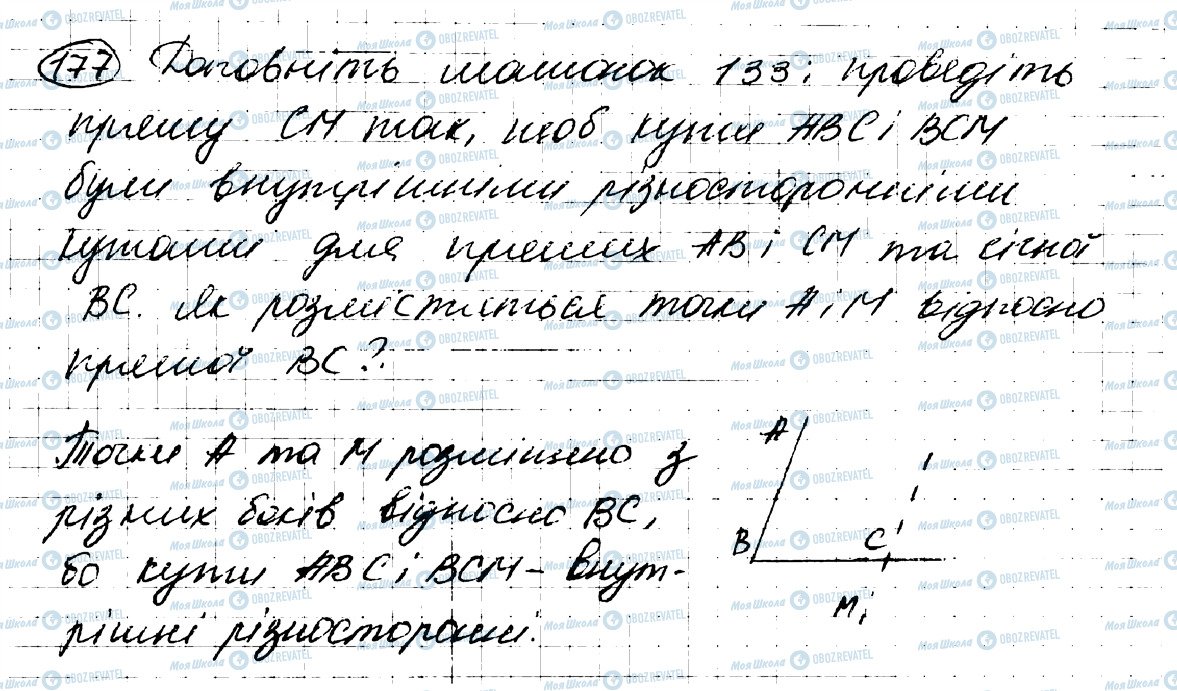 177 Доповніть малюнок 133: проведіть
пряму CM так, щоб кути ABC і BCM
були внутрішніми різносторонніми
кутами для прямих AB і CM та січної
BC. Як розмістяться точки A і M відносно
прямої BC?
Точки A та M розміщено з
різних боків відносно BC,
бо кути ABC і BCM - внут-
рішні різносторонні.
A
B
C
M